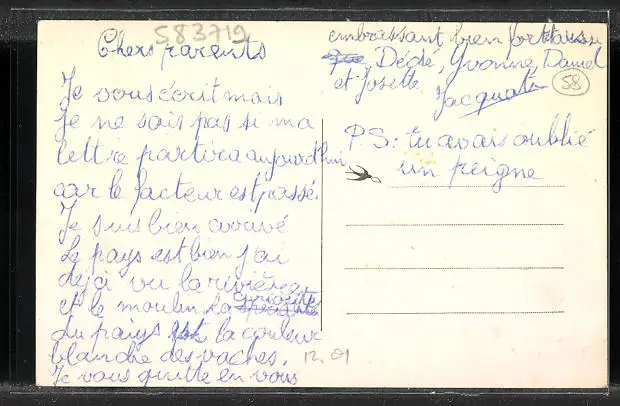 583719
Chers parents
Je vous écrit mais
je ne sais pas si ma
lettre partira aujourd'hui
car le facteur est passé.
Je suis bien arrivé
Le pays est bien j'ai
déjà vu la rivière
et le moulin la curiosité
du pays est la couleur
blanche des vaches.
Je vous quitte en vous
embrassant bien fort
Dédé, Yvonne, Daniel
et Josette.
Jacquot
58
P.S: tu avais oublié
un peigne
12.01